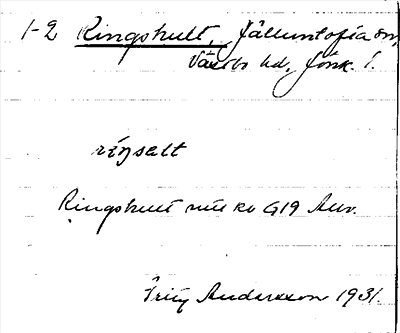 1-2 Ringshult, Jälluntofta sn,
Västbo hd, Jönk. l.
riŋselt
Ringshult 
Fritz Andersson 1931.